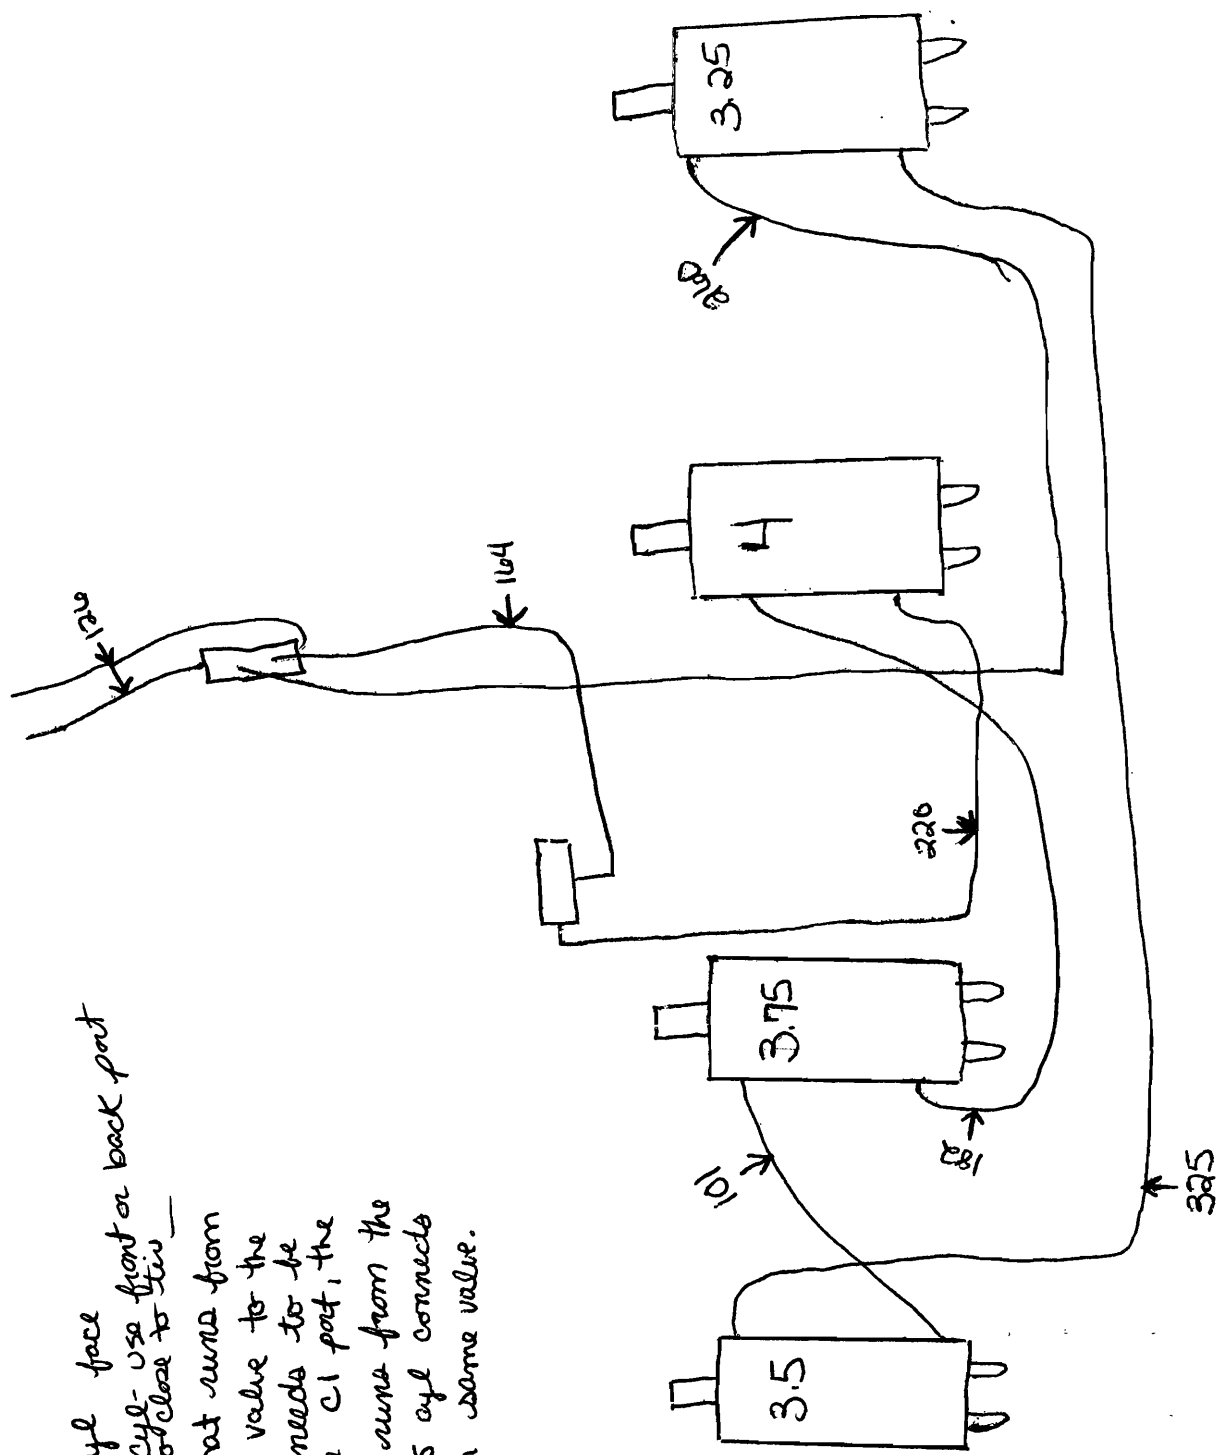 yl face
cyl- use front or back port
o close to tiv
at runs from
valve to the
needs to be
C1 port, the
runs from the
5 cyl connects
same valve.
126
164
260
3.25
4
226
3.75
182
101
3.5
325